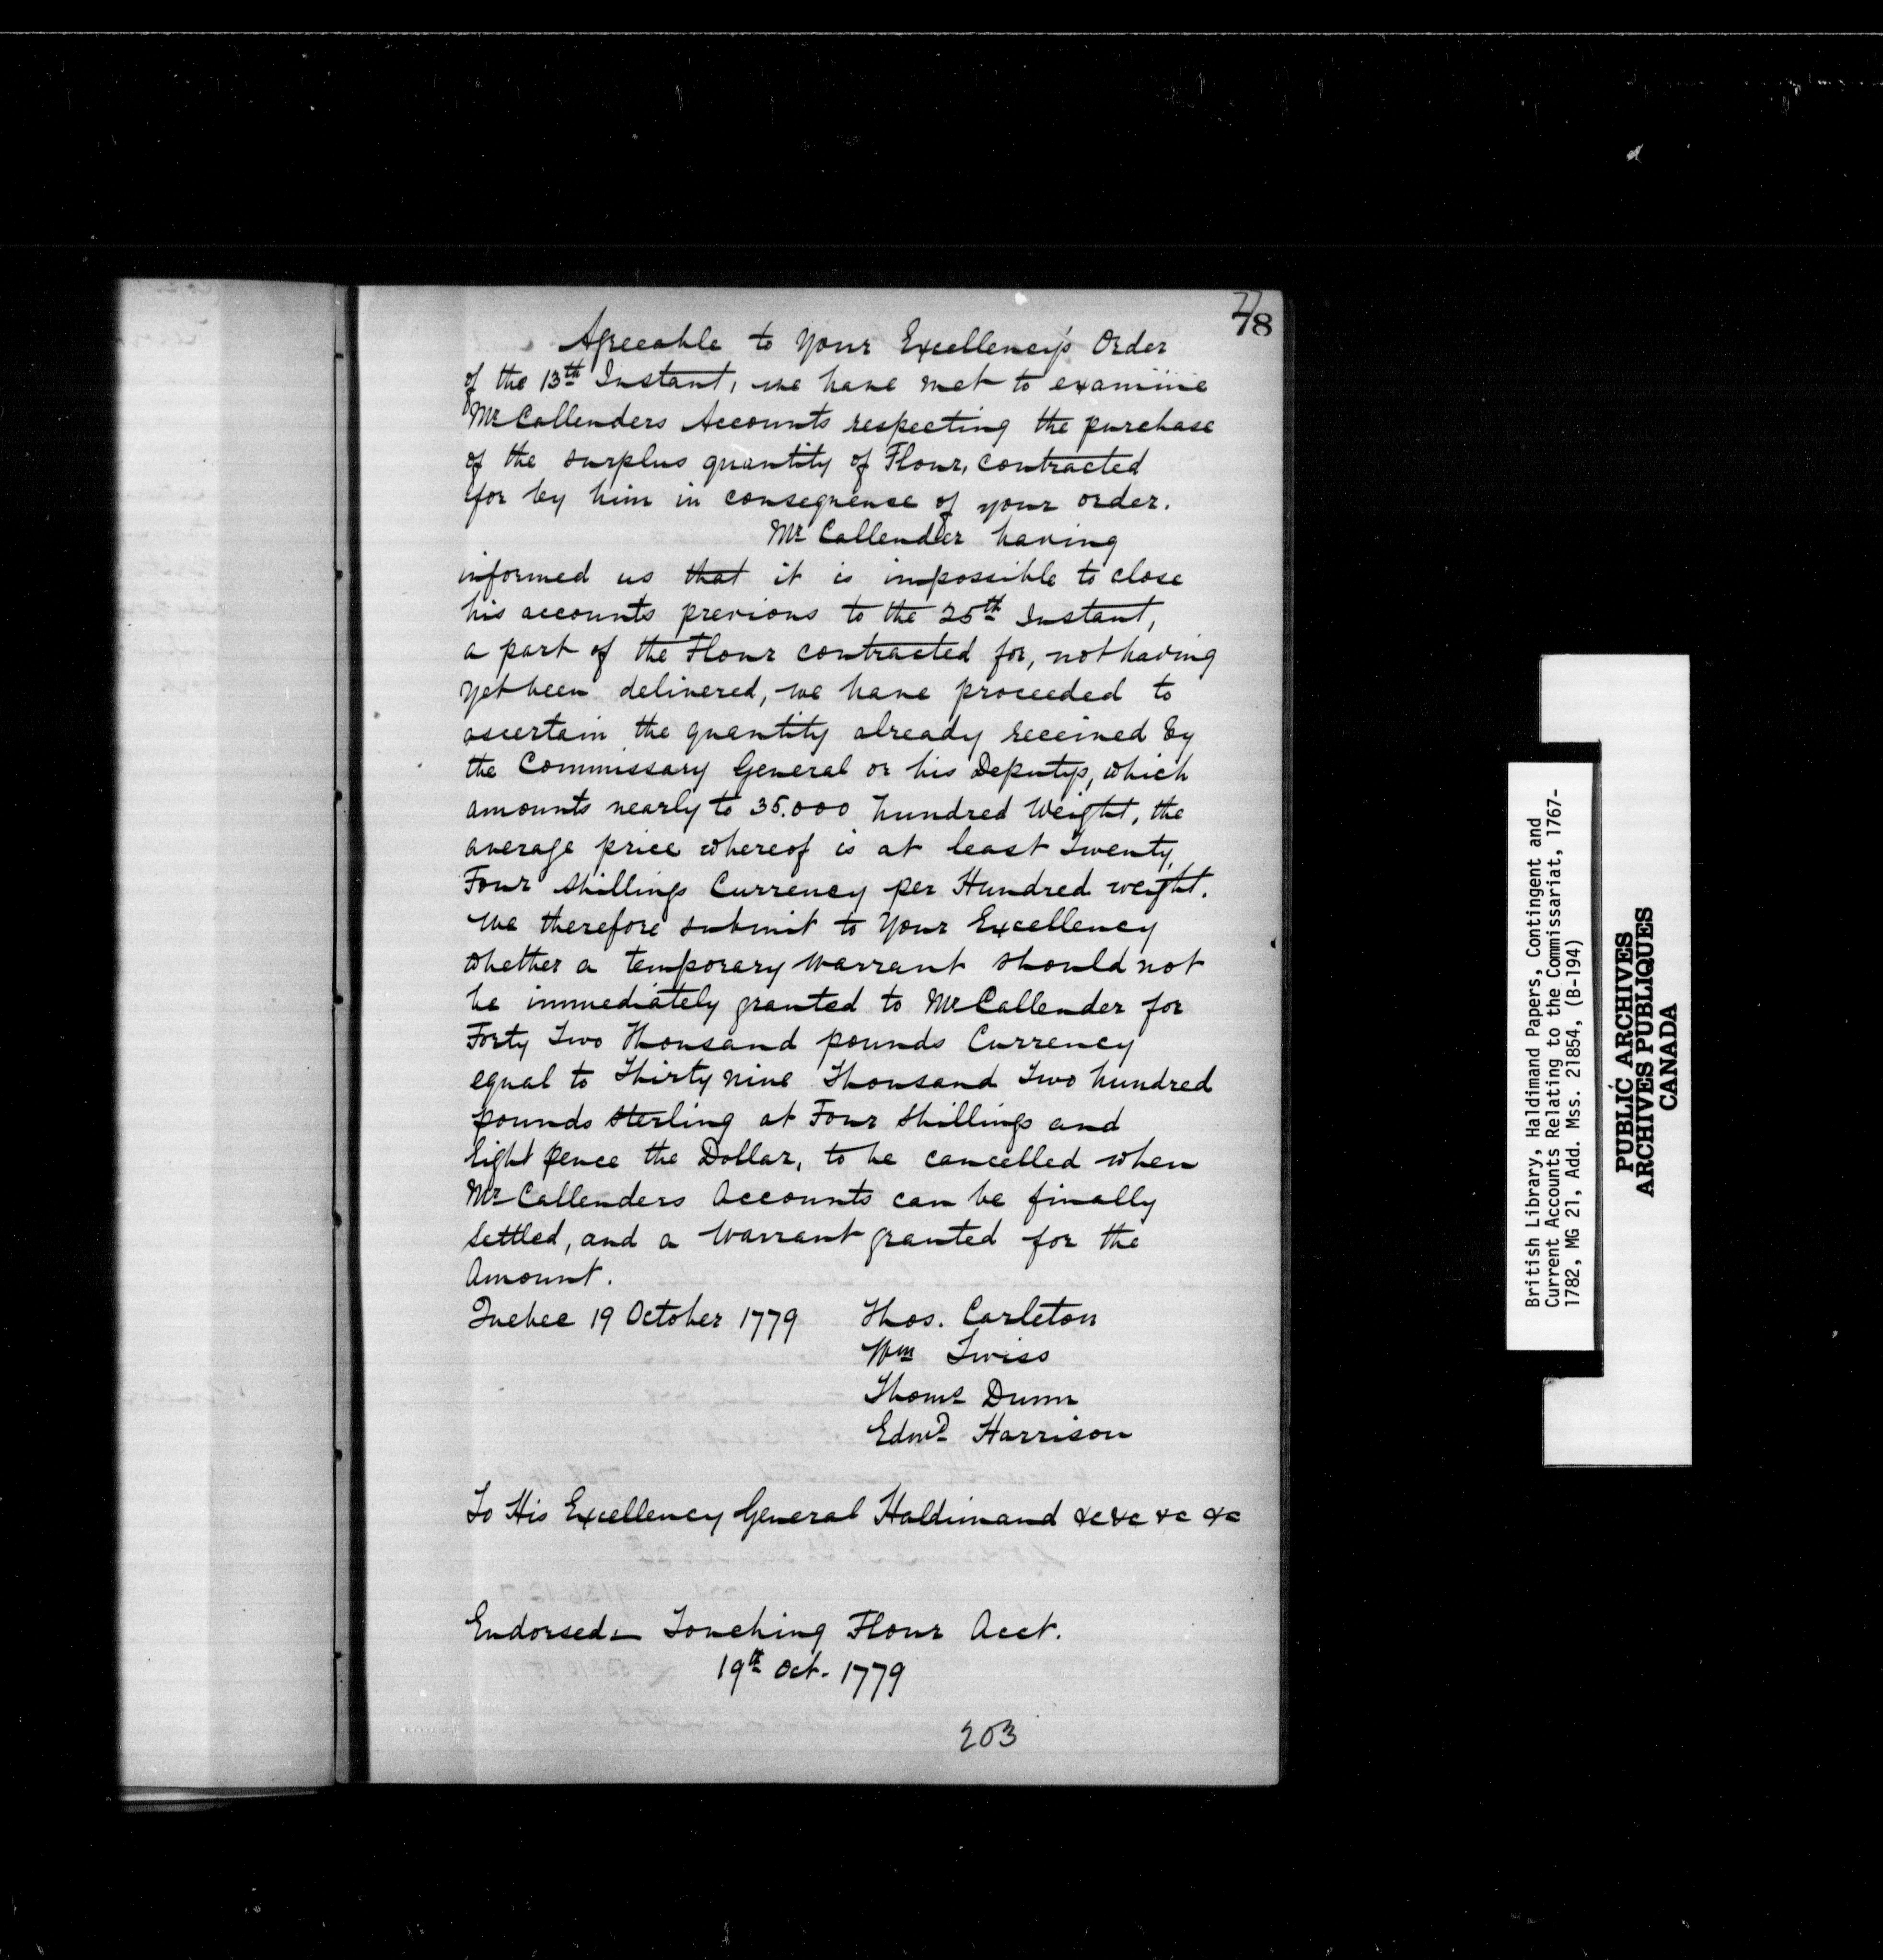 77
78
Agreeable to Your Excellency's Order
of the 13th Instant, we have met to examine
Mr Callenders Accounts respecting the purchase
of the surplus quantity of Flour, contracted
for by him in consequence of your order.
Mr Callender having
informed us that it is impossible to close
his accounts previous to the 25th Instant,
a part of the Flour contracted for, not having
yet been delivered, we have proceeded to
ascertain the quantity already received by
the Commissary General or his Deputys, which
amounts nearly to 35.000 hundred Weight, the
average price whereof is at least Twenty
Four Shillings Currency per Hundred weight.
We therefore submit to Your Excellency
whether a temporary Warrant should not
be immediately granted to Mr Callender for
Forty Two Thousand pounds Currency
equal to Thirty nine Thousand Two hundred
pounds sterling at Four Shillings and
Eight pence the Dollar, to be cancelled when
Mr Callenders Accounts can be finally
settled, and a Warrant granted for the
Amount.
Quebec 19 October 1779 Thos. Carleton
Wm Twiss
Thoms Dunn
Edwd Harrison
To His Excellency General Haldimand &c &c &c &c
Endorsed - Touching Flour Acct.
19th Oct. 1779
203
British Library, Haldimand Papers, Contingent and
Current Accounts Relating to the Commissariat, 1767-
1782, MG 21, Add. Mss. 21854, (B-194)
PUBLIC ARCHIVES
ARCHIVES PUBLIQUES
CANADA